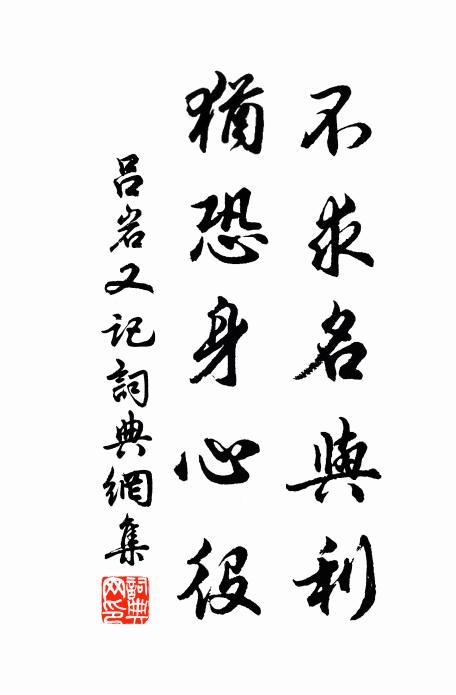 不求名與利
猶恐身心役
吕岩又記詞典網集
詞典網印